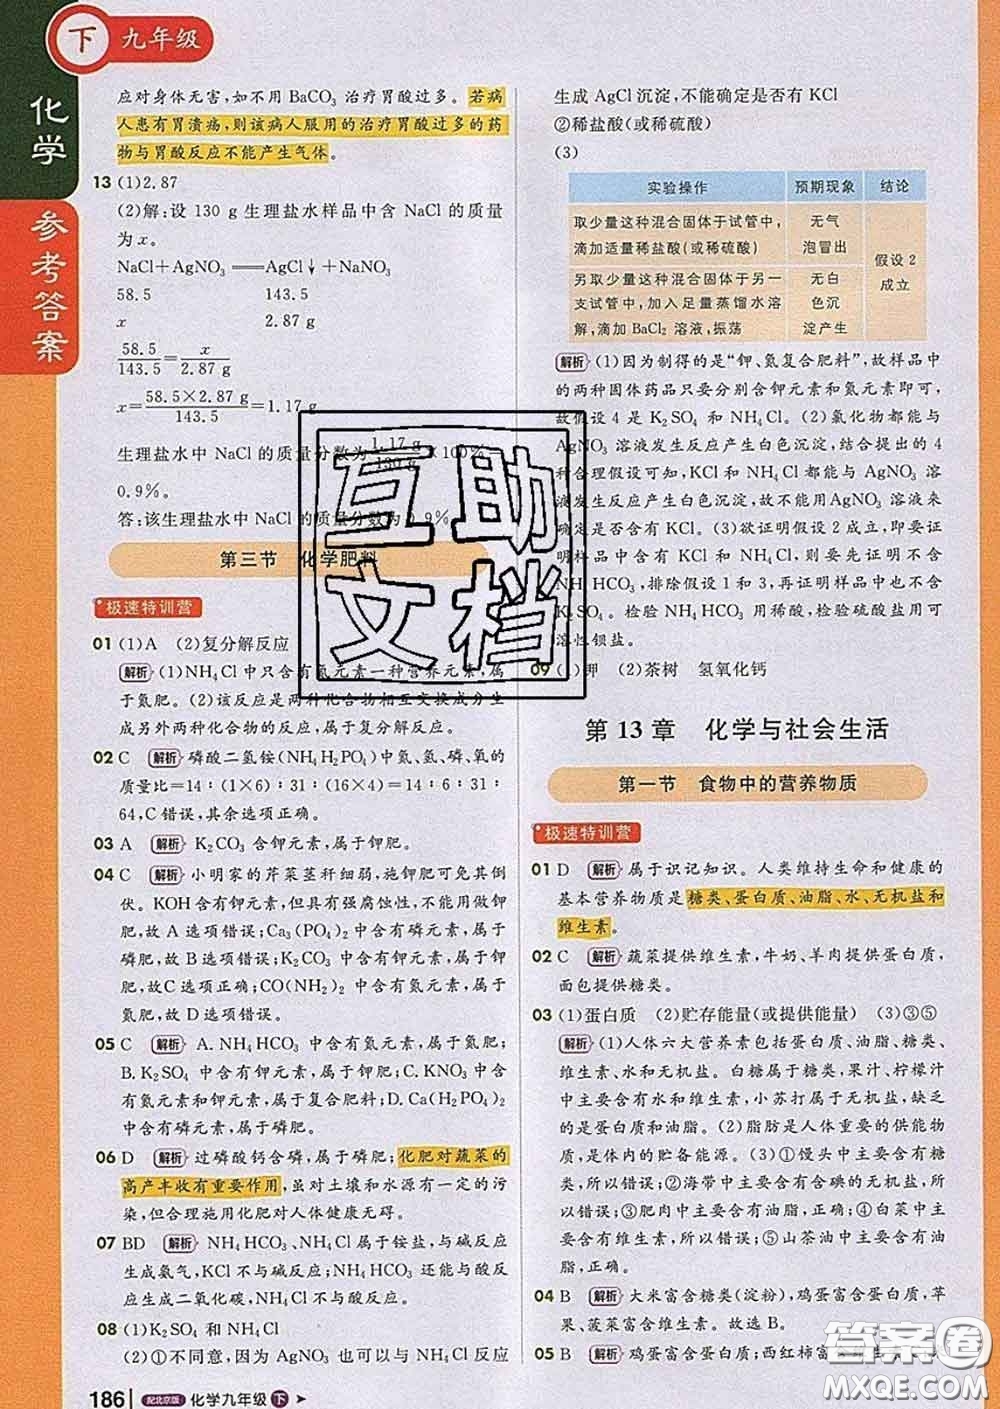 下 九年级
化学
参考答案
应对身体无害,如不用 BaCO₃ 治疗胃酸过多。若病
人患有胃溃疡,则该病人服用的治疗胃酸过多的药
物与胃酸反应不能产生气体。
13 (1)2.87
(2)解:设 130 g 生理盐水样品中含 NaCl 的质量
为 x。
NaCl+AgNO₃══AgCl↓+NaNO₃
58.5 143.5
x 2.87 g
58.5/143.5=x/2.87 g
x=58.5×2.87 g/143.5=1.17 g
生理盐水中 NaCl 的质量分数为 1.17 g/130 g×100%
0.9%。
答:该生理盐水中 NaCl 的质量分数为 0.9%
第三节 化学肥料
极速特训营
01 (1)A (2)复分解反应
解析 (1)NH₄Cl 中只含有氮元素一种营养元素,属
于氮肥。(2)该反应是两种化合物相互交换成分生
成另外两种化合物的反应,属于复分解反应。
02 C 解析 磷酸二氢铵(NH₄H₂PO₄)中氮、氢、磷、氧的
质量比=14:(1×6):31:(16×4)=14:6:31:
64,C 错误,其余选项正确。
03 A 解析 K₂CO₃ 含钾元素,属于钾肥。
04 C 解析 小明家的芹菜茎秆细弱,施钾肥可免其倒
伏。KOH含有钾元素,但具有强腐蚀性,不能用做钾
肥,故 A 选项错误;Ca₃(PO₄)₂ 中含有磷元素,属于
磷肥,故 B 选项错误;K₂CO₃ 中含有钾元素,属于钾
肥,故C选项正确;CO(NH₂)₂ 中含有氮元素,属于
氮肥,故 D 选项错误。
05 C 解析 A. NH₄HCO₃ 中含有氮元素,属于氮肥;
B. K₂SO₄ 中含有钾元素,属于钾肥;C. KNO₃ 中含
有氮元素和钾元素,属于复合肥料;D. Ca(H₂PO₄)₂
中含有磷元素,属于磷肥。
06 D 解析 过磷酸钙含磷,属于磷肥;化肥对蔬菜的
高产丰收有重要作用,虽对土壤和水源有一定的污
染,但合理施用化肥对人体健康无碍。
07 BD 解析 NH₄HCO₃、NH₄Cl 属于铵盐,与碱反应
生成氨气,KCl 不与碱反应;NH₄HCO₃ 还能与酸反
应生成二氧化碳,NH₄Cl 不与酸反应。
08 (1)K₂SO₄ 和 NH₄Cl
(2)①不同意,因为 AgNO₃ 也可以与 NH₄Cl 反应
生成 AgCl 沉淀,不能确定是否有 KCl
②稀盐酸(或稀硫酸)
(3)
实验操作 预期现象 结论
取少量这种混合固体于试管中,
滴加适量稀盐酸(或稀硫酸)
无气
泡冒出
另取少量这种混合固体于另一
支试管中,加入足量蒸馏水溶
解,滴加 BaCl₂ 溶液,振荡
无白
色沉
淀产生
假设 2
成立
解析 (1)因为制得的是“钾、氮复合肥料”,故样品中
的两种固体药品只要分别含钾元素和氮元素即可,
故假设 4 是 K₂SO₄ 和 NH₄Cl。(2)氯化物都能与
AgNO₃ 溶液发生反应产生白色沉淀,结合提出的 4
种合理假设可知,KCl 和 NH₄Cl 都能与 AgNO₃ 溶
液发生反应产生白色沉淀,故不能用 AgNO₃ 溶液来
确定是否有 KCl。(3)欲证明假设 2 成立,即要证
明样品中含有 KCl 和 NH₄Cl,则要先证明不含
NH₄HCO₃,排除假设 1 和 3,再证明样品中也不含
K₂SO₄。检验 NH₄HCO₃ 用稀酸,检验硫酸盐用可
溶性钡盐。
09 (1)钾 (2)茶树 氢氧化钙
第 13 章 化学与社会生活
第一节 食物中的营养物质
极速特训营
01 D 解析 属于识记知识。人类维持生命和健康的
基本营养物质是糖类、蛋白质、油脂、水、无机盐和
维生素。
02 C 解析 蔬菜提供维生素,牛奶、羊肉提供蛋白质,
面包提供糖类。
03 (1)蛋白质 (2)贮存能量(或提供能量) (3)③⑤
解析 (1)人体六大营养素包括蛋白质、油脂、糖类、
维生素、水和无机盐。白糖属于糖类,果汁、柠檬汁
中主要含有水和维生素,小苏打属于无机盐,缺乏
的是蛋白质。(2)脂肪是人体重要的供能物质,是生
物体内的贮能物质。(3)①馒头中主要含有糖类,
所以错误;②海带中主要含有含碘的无机盐,所以
错误;③肥肉中主要含有油脂,正确;④白菜中主要
含有维生素,所以错误;⑤山茶油中主要含有油脂,
正确。
04 B 解析 大米富含糖类(淀粉),鸡蛋富含蛋白质,苹
果、菠菜富含维生素。故选 B。
05 B 解析 鸡蛋富含蛋白质;西红柿富
186 配北京版 化学九年级 下
互助
文档
答案圈
MXQE.COM